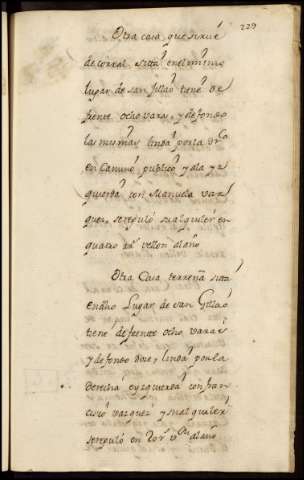 229
Otra casa que sirue
de corral, sitta en el mismo
lugar de san Jillao tiene de
frente ocho varas, y de fondo
las mismas, linda por la dra
en Camino publico, y a la yz
quierda con Manuela Vaz
quez, se regulo su alquiler en
quatro rs vellon al año
Otra Casa terrena sita
en dho Lugar de san Gillao
tiene de frente ocho varas
y de fondo doze, linda por la
derecha e yzquierda con fran
cisco vazquez y su alquiler
se regulo en rs von al año